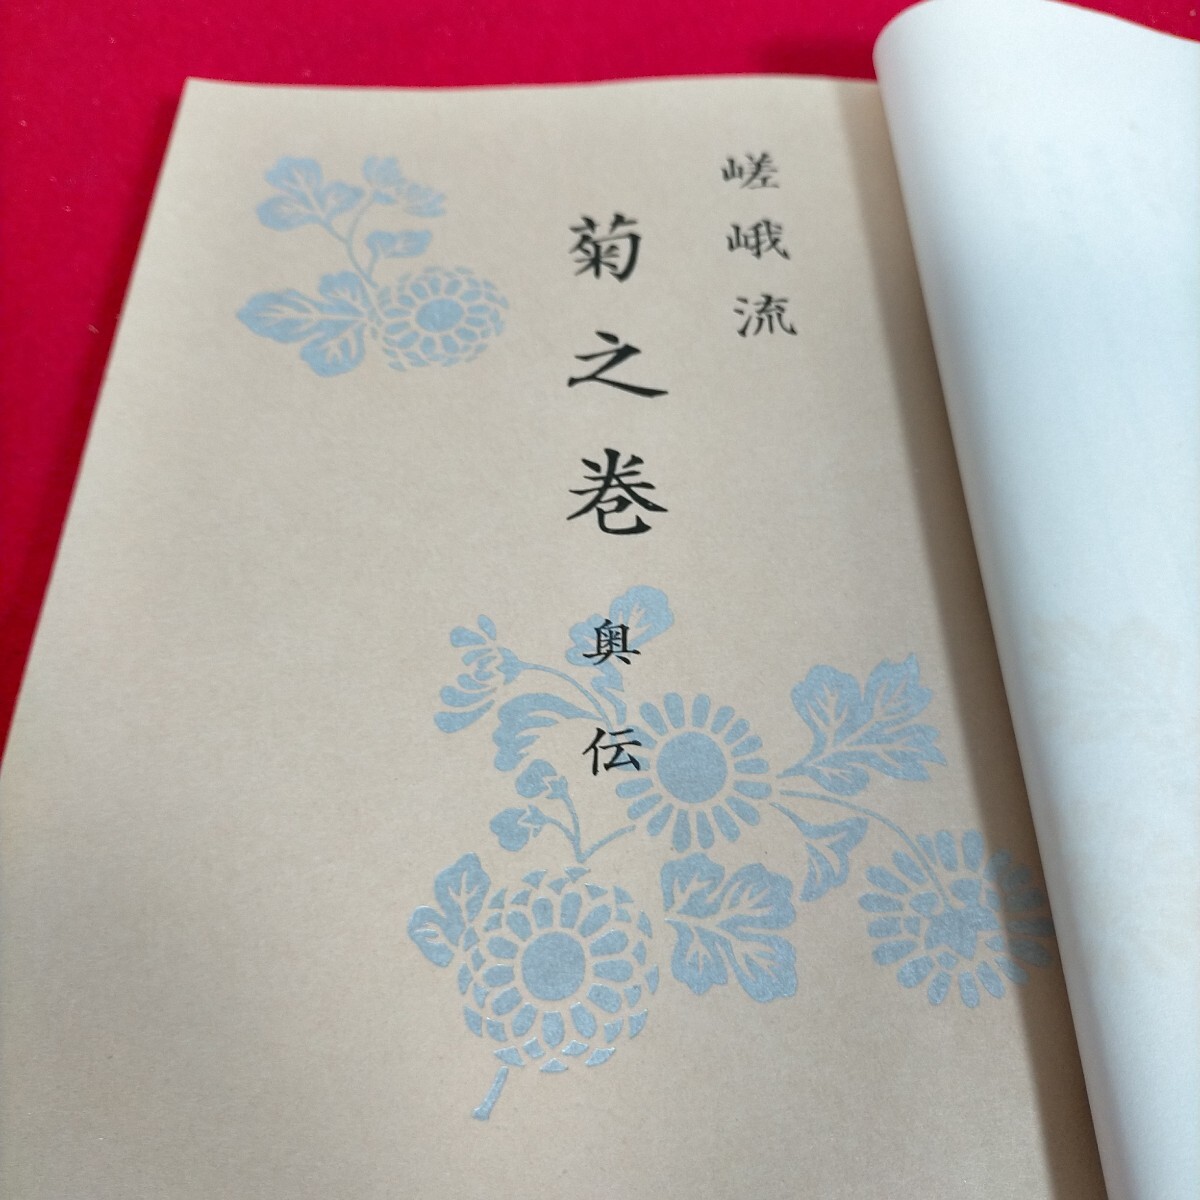 嵯峨流
菊之巻 奥伝